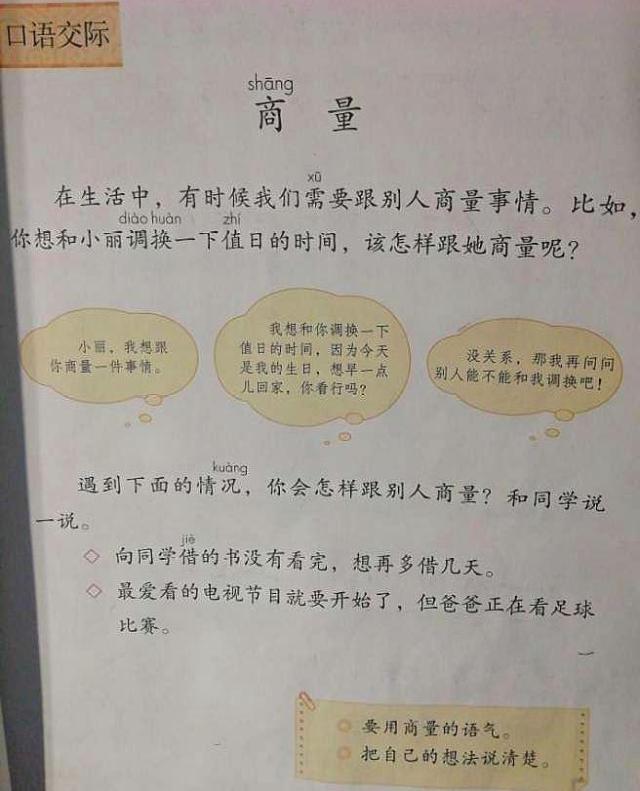 口语交际
shāng
商 量
xū
在生活中，有时候我们需要跟别人商量事情。比如，
diào huàn zhí
你想和小丽调换一下值日的时间，该怎样跟她商量呢？
小丽，我想跟
你商量一件事情。
我想和你调换一下
值日的时间，因为今天
是我的生日，想早一点
儿回家，你看行吗？
没关系，那我再问问
别人能不能和我调换吧！
kuàng
遇到下面的情况，你会怎样跟别人商量？和同学说
一说。
jiè
◇ 向同学借的书没有看完，想再多借几天。
◇ 最爱看的电视节目就要开始了，但爸爸正在看足球
比赛。
要用商量的语气。
把自己的想法说清楚。